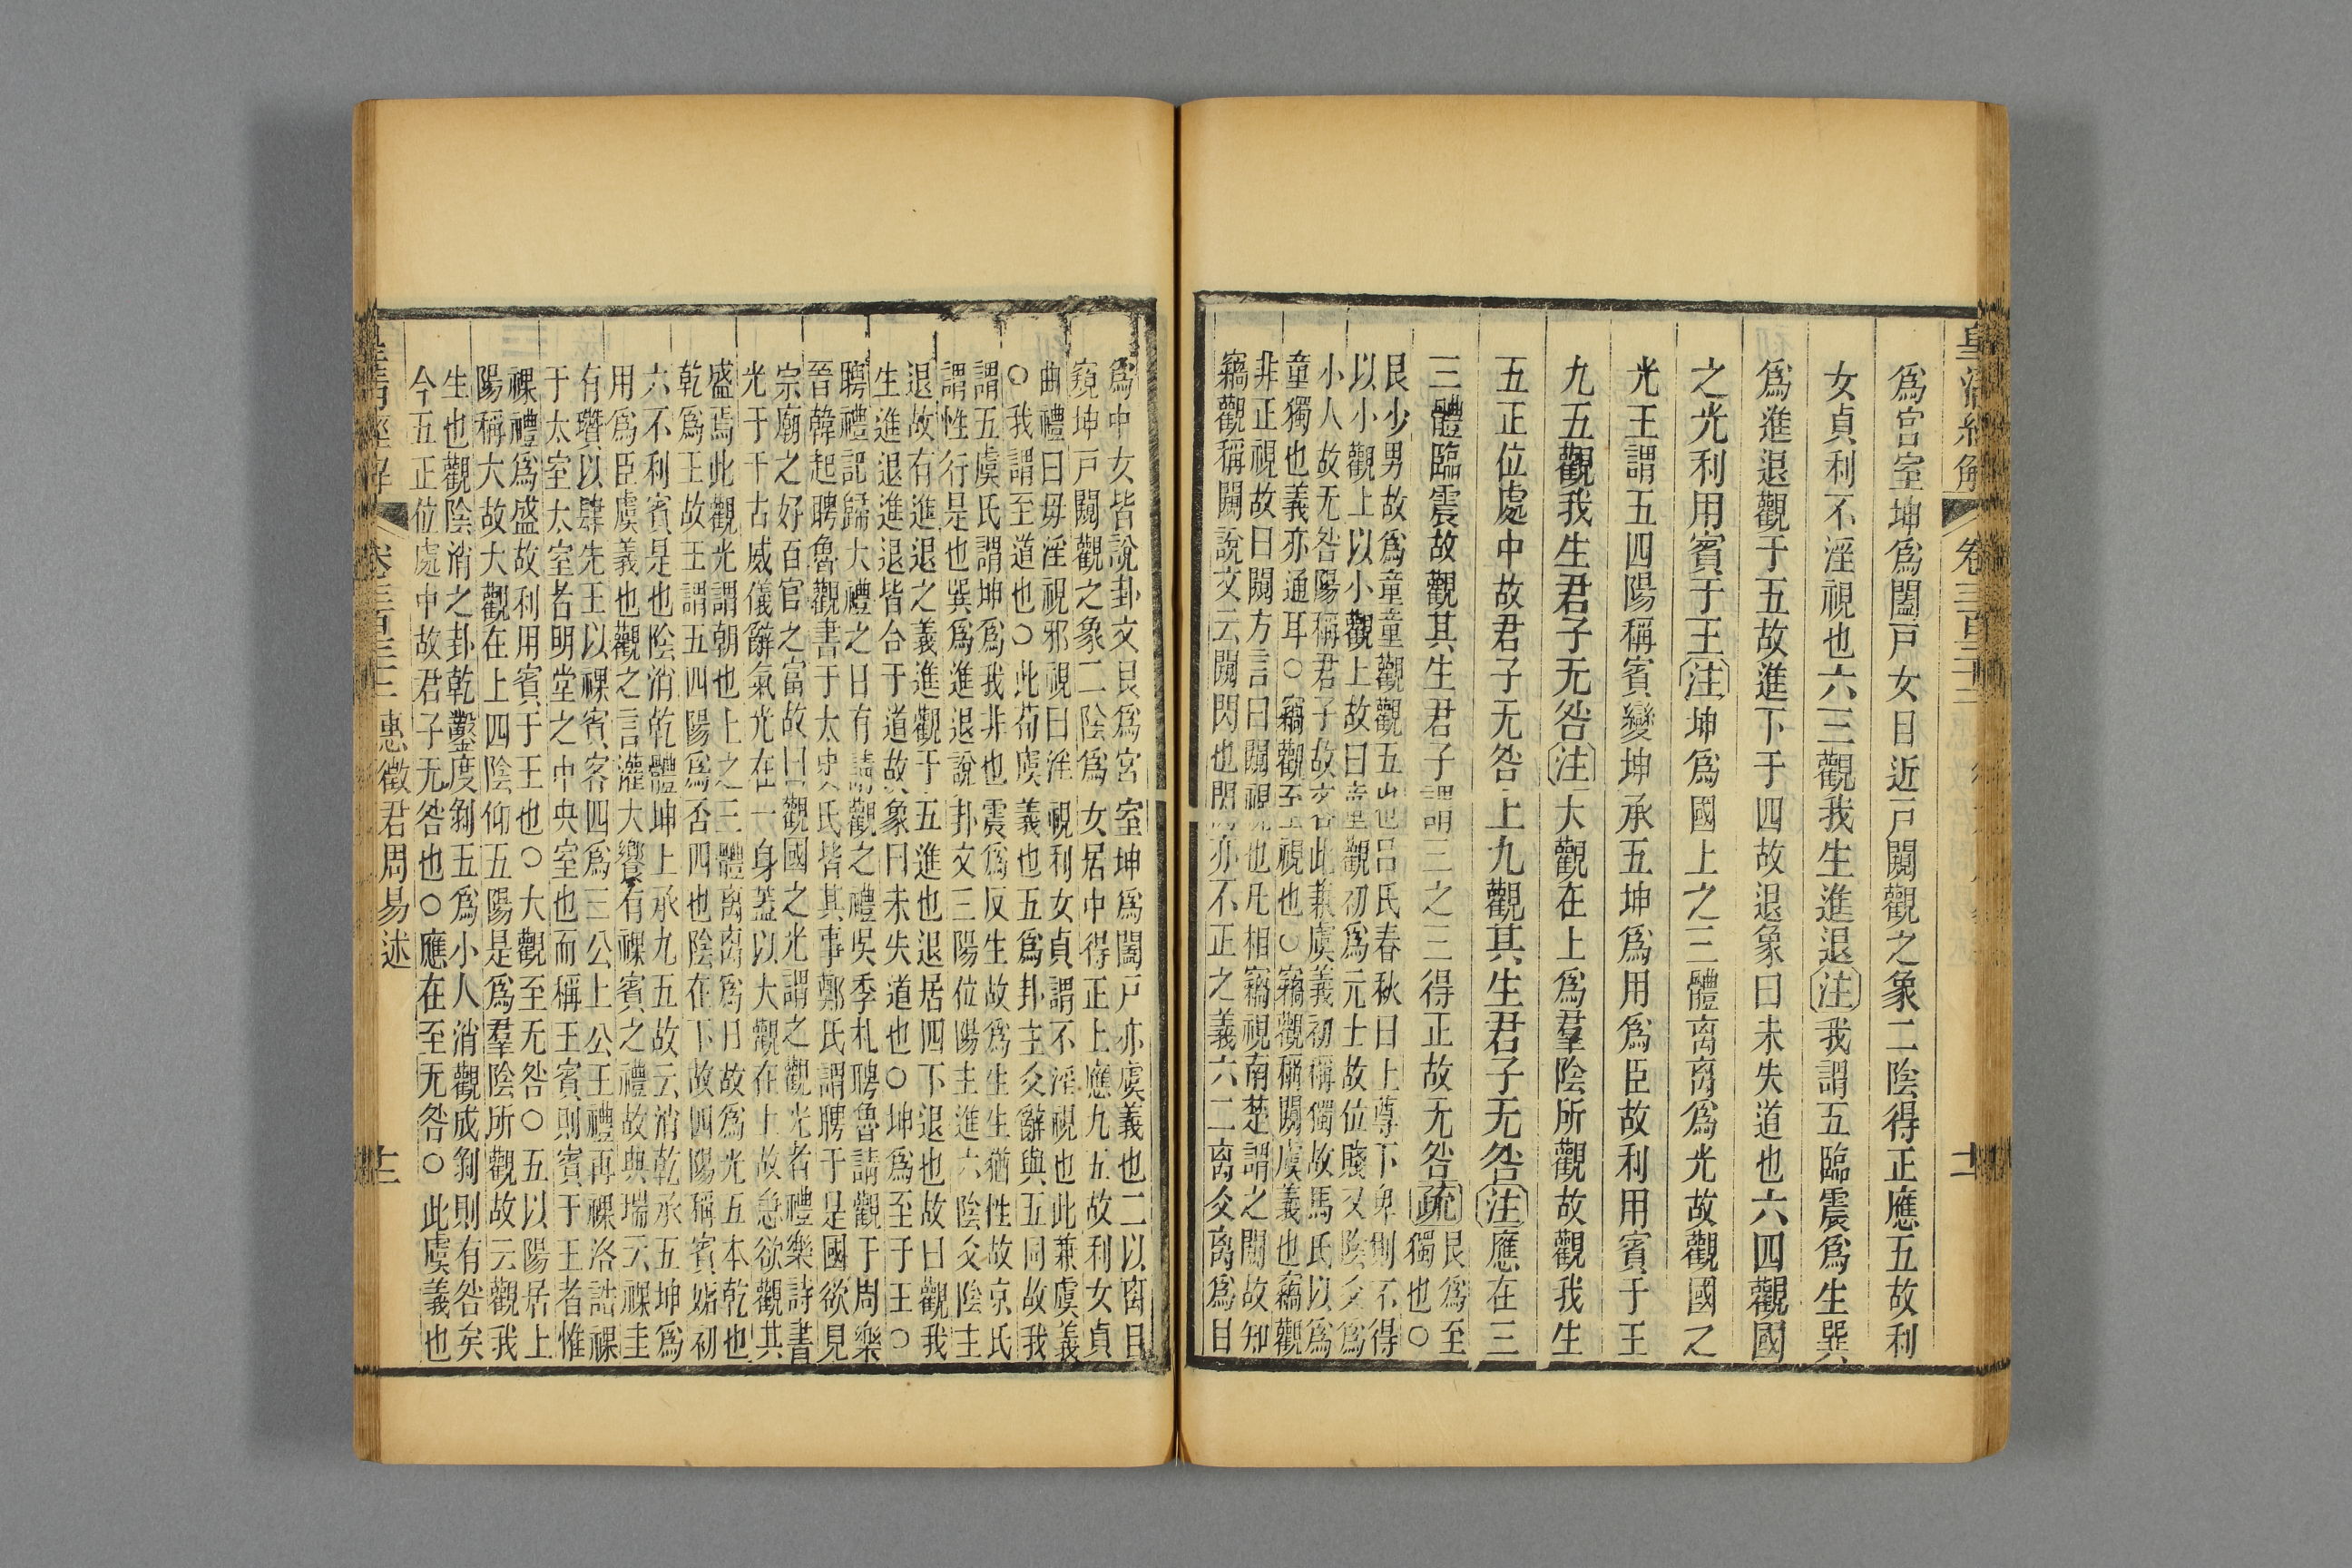 皇清經解 卷三百三十三 十一
爲宮室坤爲闔戸女目近戸闚觀之象二陰得正應五故利
女貞利不淫視也六三觀我生進退注我謂五臨震爲生巽
爲進退觀于五故進下于四故退象曰未失道也六四觀國
之光利用賓于王注坤爲國上之三體离离爲光故觀國之
光王謂五四陽稱賓變坤承五坤爲用爲臣故利用賓于王
九五觀我生君子无咎注大觀在上爲羣陰所觀故觀我生
五正位處中故君子无咎上九觀其生君子无咎注應在三
三體臨震故觀其生君子謂三之三得正故无咎疏
艮爲至
獨也○
艮少男故爲童童觀觀五也呂氏春秋曰上尊下卑則不得
以小觀上以小觀上故曰童觀初爲元士故位賤又陰爻爲
小人故无咎陽稱君子故吝此兼虞義初稱獨故馬氏以爲
童獨也義亦通耳○竊觀至視也○竊觀稱闚虞義也竊觀
非正視故曰闚方言曰闚視也凡相竊視南楚謂之闚故知
竊觀稱闚說文云闚閃也閃亦不正之義六二离爻离爲目
爲中女皆說卦文艮爲宮室坤爲闔戸亦虞義也二以离目
窺坤戸闚觀之象二陰爲女居中得正上應九五故利女貞
曲禮曰毋淫視邪視曰淫視利女貞謂不淫視也此兼虞義
○我謂至道也○此荀虞義也五爲卦主爻辭與五同故我
謂五虞氏謂坤爲我非也震爲反生故爲生生猶性故京氏
謂性行是也巽爲進退說卦文三陽位陽主進六陰爻陰主
退故有進退之義進觀于五進也退居四下退也故曰觀我
生進退進退皆合于道故象曰未失道也○坤爲至于王○
聘禮記歸大禮之日有請觀之禮吳季札聘魯請觀于周樂
晉韓起聘魯觀書于太史氏皆其事鄭氏謂聘于是國欲見
宗廟之好百官之富故曰觀國之光謂之觀光者禮樂詩書
光于千古威儀辭氣光在一身蓋以大觀在上故急欲觀其
盛焉此觀光謂朝也上之三體离离爲日故爲光五本乾也
乾爲王故王謂五四陽爲否四也陰在下故四陽稱賓姤初
六不利賓是也陰消乾體坤上承九五故云消乾承五坤爲
用爲臣虞義也觀之言灌大饗有祼賓之禮故典瑞云祼圭
有瓚以肆先王以祼賓客四爲三公上公王禮再祼洛誥祼
于太室太室者明堂之中央室也而稱王賓則賓于王者惟
祼禮爲盛故利用賓于王也○大觀至无咎○五以陽居上
陽稱大故大觀在上四陰仰五陽是爲羣陰所觀故云觀我
生也觀陰消之卦乾鑿度剝五爲小人消觀成剝則有咎矣
今五正位處中故君子无咎也○應在至无咎○此虞義也
皇清經解 卷三百三十三 惠徵君周易述 十二